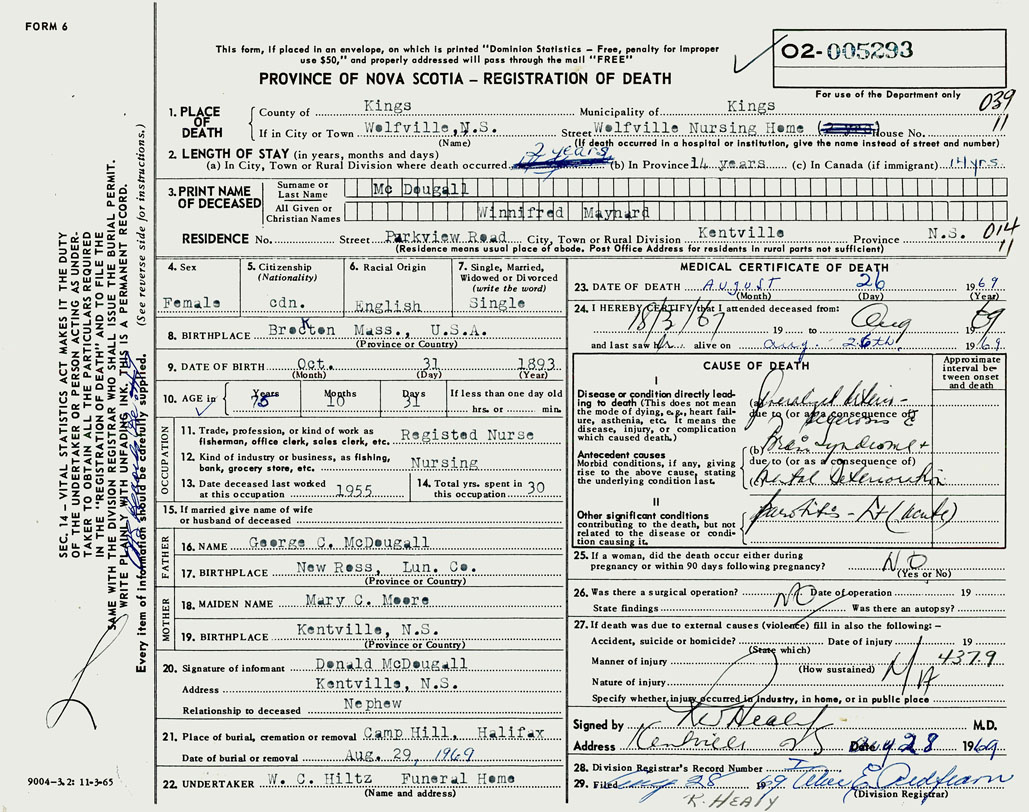 FORM 6
This form, if placed in an envelope, on which is printed "Dominion Statistics – Free, penalty for improper
use $50," and properly addressed will pass through the mail "FREE"
PROVINCE OF NOVA SCOTIA – REGISTRATION OF DEATH
02-005293
For use of the Department only
039
11
1. PLACE OF DEATH
County of Kings Municipality of Kings
If in City or Town Wolfville, N.S. Street Wolfville Nursing Home House No.
(Name) (If death occurred in a hospital or institution, give the name instead of street and number)
2. LENGTH OF STAY (in years, months and days)
(a) In City, Town or Rural Division where death occurred 2 years (b) In Province 14 years (c) In Canada (if immigrant) 14 yrs
3. PRINT NAME OF DECEASED
Surname or Last Name Mc Dougall
All Given or Christian Names Winnifred Maynard
RESIDENCE No. Street Parkview Road City, Town or Rural Division Kentville Province N.S.
014
11
(Residence means usual place of abode. Post Office Address for residents in rural parts not sufficient)
4. Sex
Female
5. Citizenship
(Nationality)
cdn.
6. Racial Origin
English
7. Single, Married,
Widowed or Divorced
(write the word)
Single
8. BIRTHPLACE Brockton Mass., U.S.A.
(Province or Country)
9. DATE OF BIRTH Oct. 31 1893
(Month) (Day) (Year)
10. AGE in Years Months Days If less than one day old
10 31 hrs. or min.
OCCUPATION
11. Trade, profession, or kind of work as
fisherman, office clerk, sales clerk, etc. Registed Nurse
12. Kind of industry or business, as fishing,
bank, grocery store, etc. Nursing
13. Date deceased last worked
at this occupation 1955
14. Total yrs. spent in
this occupation 30
15. If married give name of wife
or husband of deceased
FATHER
16. NAME George C. McDougall
17. BIRTHPLACE New Ross, Lun. Co.
(Province or Country)
MOTHER
18. MAIDEN NAME Mary C. Moore
19. BIRTHPLACE Kentville, N.S.
(Province or Country)
20. Signature of informant Donald McDougall
Address Kentville, N.S.
Relationship to deceased Nephew
21. Place of burial, cremation or removal Camp Hill, Halifax
Date of burial or removal Aug. 29, 1969
22. UNDERTAKER W. C. Hiltz Funeral Home
(Name and address)
MEDICAL CERTIFICATE OF DEATH
23. DATE OF DEATH AUGUST 26 1969
(Month) (Day) (Year)
24. I HEREBY CERTIFY that I attended deceased from:
18/3/67 19 to Aug 19 69
and last saw her alive on Aug. 26th, 1969
CAUSE OF DEATH
Approximate interval between onset and death
I
Disease or condition directly leading to death (This does not mean
the mode of dying, e.g., heart failure, asthenia, etc. It means the
disease, injury, or complication
which caused death.)
(a) Generalized Arterio-
sclerosis c̄
due to (or as a consequence of)
Antecedent causes
Morbid conditions, if any, giving
rise to the above cause, stating
the underlying condition last.
(b) Brain Syndrome +
due to (or as a consequence of)
Mental Deterioration
II
Other significant conditions
contributing to the death, but not
related to the disease or condition causing it.
Parotitis - Rt (acute)
25. If a woman, did the death occur either during
pregnancy or within 90 days following pregnancy? NO
(Yes or No)
26. Was there a surgical operation? NO Date of operation 19
State findings Was there an autopsy?
27. If death was due to external causes (violence) fill in also the following: –
Accident, suicide or homicide? Date of injury 19
(State which)
Manner of injury N/A 4379
(How sustained)
Nature of injury
Specify whether injury occurred in industry, in home, or in public place
Signed by K Healy M.D.
Address Kentville NS Date Aug 28 1969
28. Division Registrar's Record Number
29. Filed Aug 28 1969
(Division Registrar)
K. HEALY
SEC. 14 – VITAL STATISTICS ACT MAKES IT THE DUTY
OF THE UNDERTAKER OR PERSON ACTING AS UNDERTAKER TO OBTAIN ALL THE PARTICULARS REQUIRED
IN THE "REGISTRATION OF DEATH" AND TO FILE THE
SAME WITH THE DIVISION REGISTRAR WHO SHALL ISSUE THE BURIAL PERMIT.
WRITE PLAINLY WITH UNFADING INK. THIS IS A PERMANENT RECORD.
Every item of information should be carefully supplied. (See reverse side for instructions.)
9004–3.2: 11-3-65